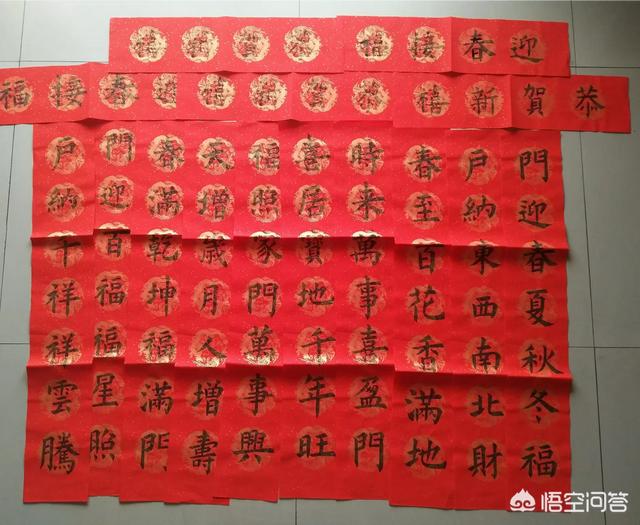 迎春接福
恭賀新禧
恭賀新禧
恭賀新禧
迎春接福
門迎春夏秋冬福
戶納東西南北財
春至百花香滿地
時來萬事喜盈門
喜居寶地千年旺
福照家門萬事興
天增歲月人增壽
春滿乾坤福滿門
門迎百福福星照
戶納千祥祥雲騰
悟空问答